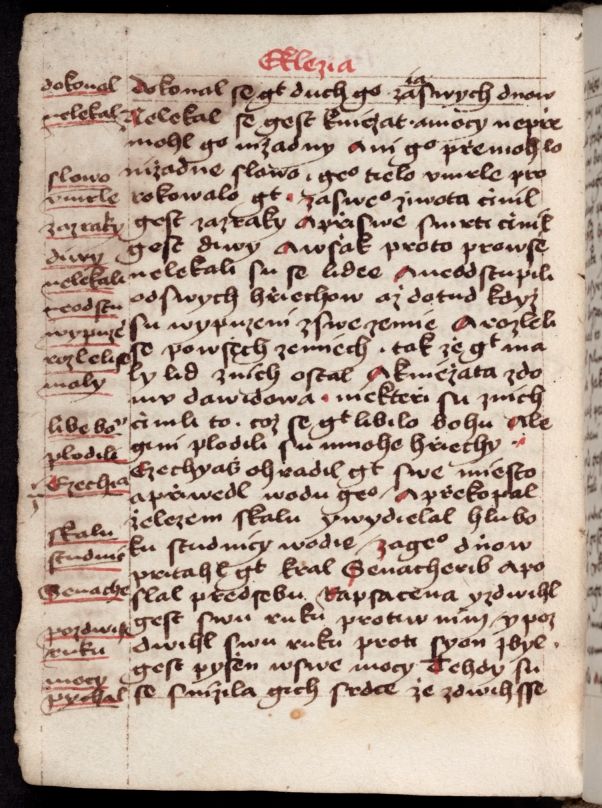 Ekklezia
dokonal
nelekal
slowo
vmrle
zazraky
diwy
nelekali
neodstu
wypuze
rozleli se
maly
libe bo
plodili
Ezechia
skalu
studnic
Senache
pozdwih
ruku
mocy
pychal
dokonal se gt duch geo zaswych dnow
Nelekal se gest kniezat · a mocy nepře
mohl geo nižadny A ni geo přemohlo
nižadne slowo · geo tielo vmrle pro
rokowalo gt · zasweo žiwota činil
gest zazraky A při swe smrti činil
gest diwy A wšak proto prowse
nelekali su se lidee A neodstupili
od swych hřiechow až dotud když
su wypuzeni zswe zemie A rozleli
se powsech zemiech · tak že gt ma
ly lid z nich ostal A kniežata zdo
mu dawidowa · niekteři su z nich
činili to · což se gt libilo bohu Ale
gini plodili su mnohe hřiechy ·
Ezechyaš ohradil gt swe miesto
a přiwedl wodu geo A překopal
železem skalu y wydielal hlubo
ku studnicy wodie · zageo dnow
přitahl gt kral Senacherib A po
slal předsebu Rapsacena y zdwihl
gest swu ruku protiw nim y poz
dwihl swu ruku proti syon ybyl
gest pyšen wswe mocy Tehdy su
se snížila gich srdce že zdwihsse